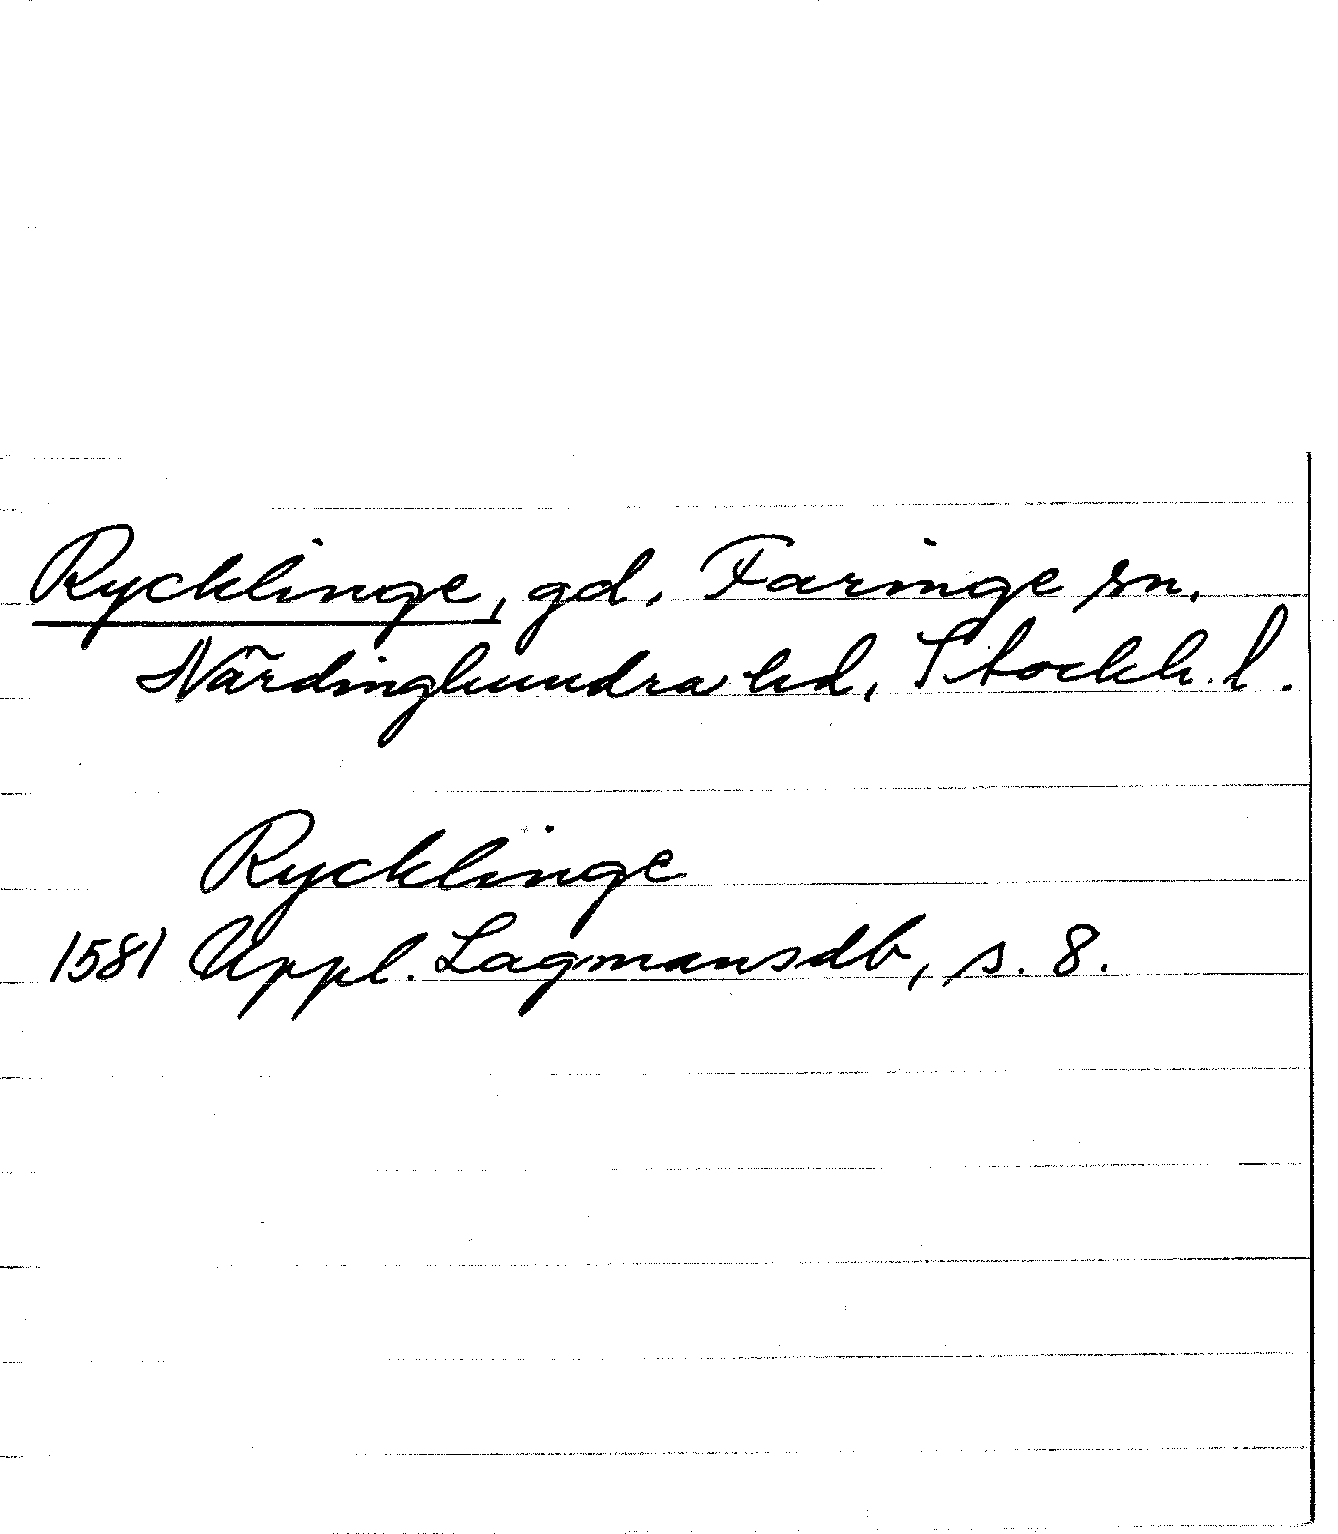 Rycklinge, gd, Faringe sn.
Närdinghundra hd, Stockh. l.
Rycklinge
1581 Uppl. Lagmansdb, s. 8.